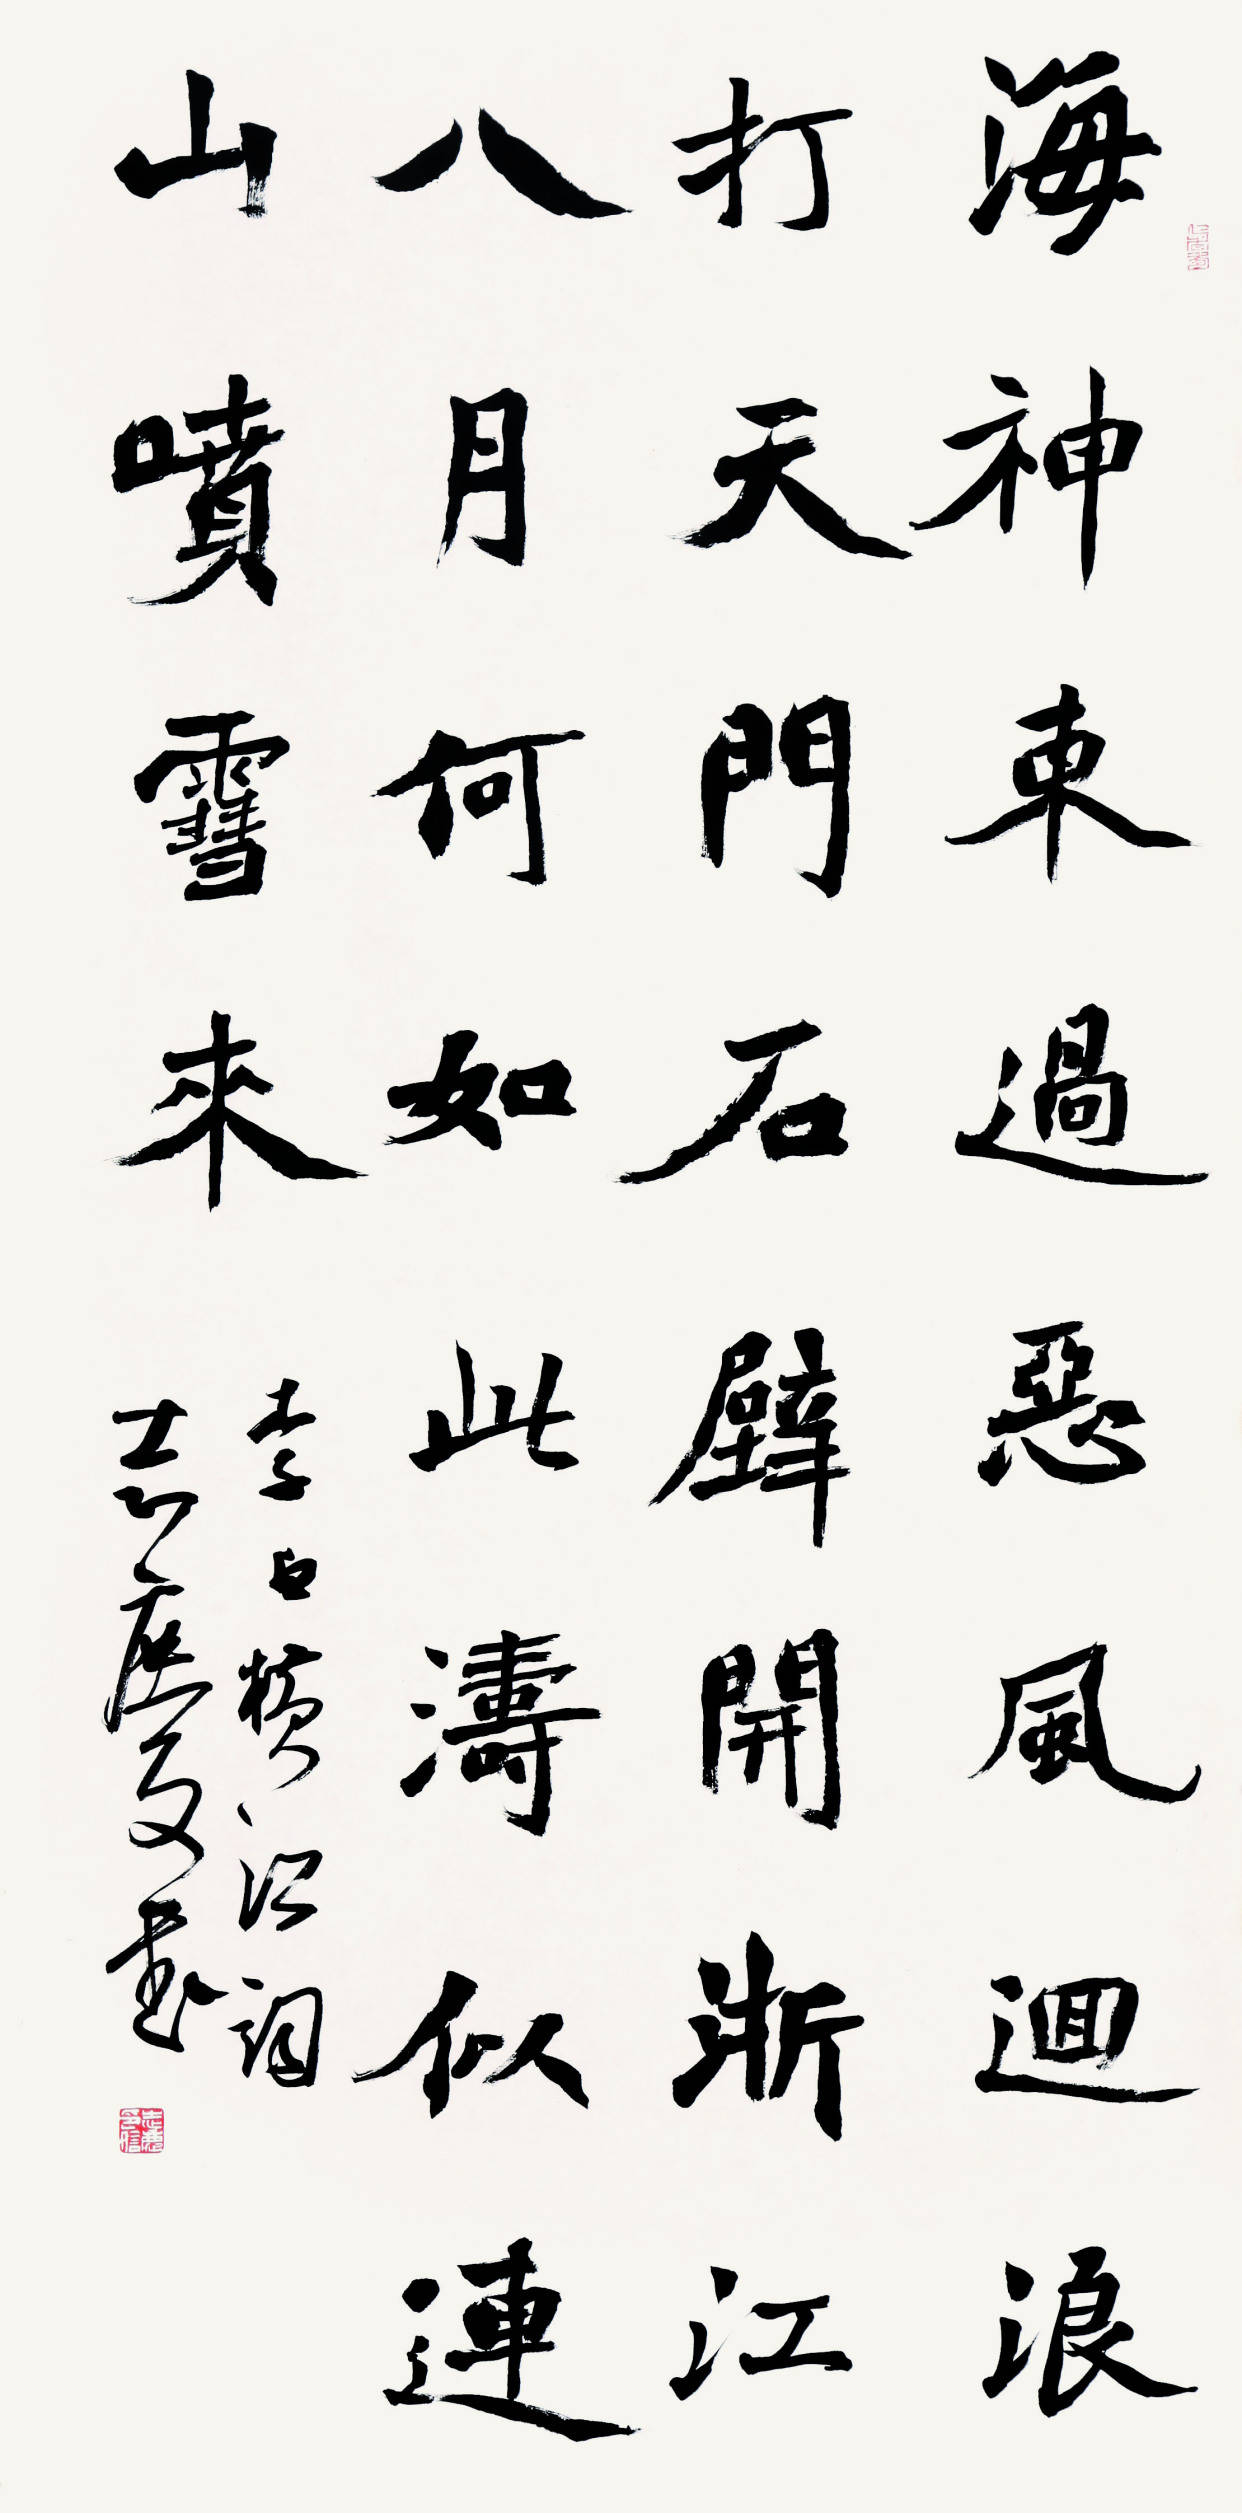 海神東過惡風迴浪
打天門石壁開浙江
八月何如此濤似連
山噴雪來
李白橫江詞
書